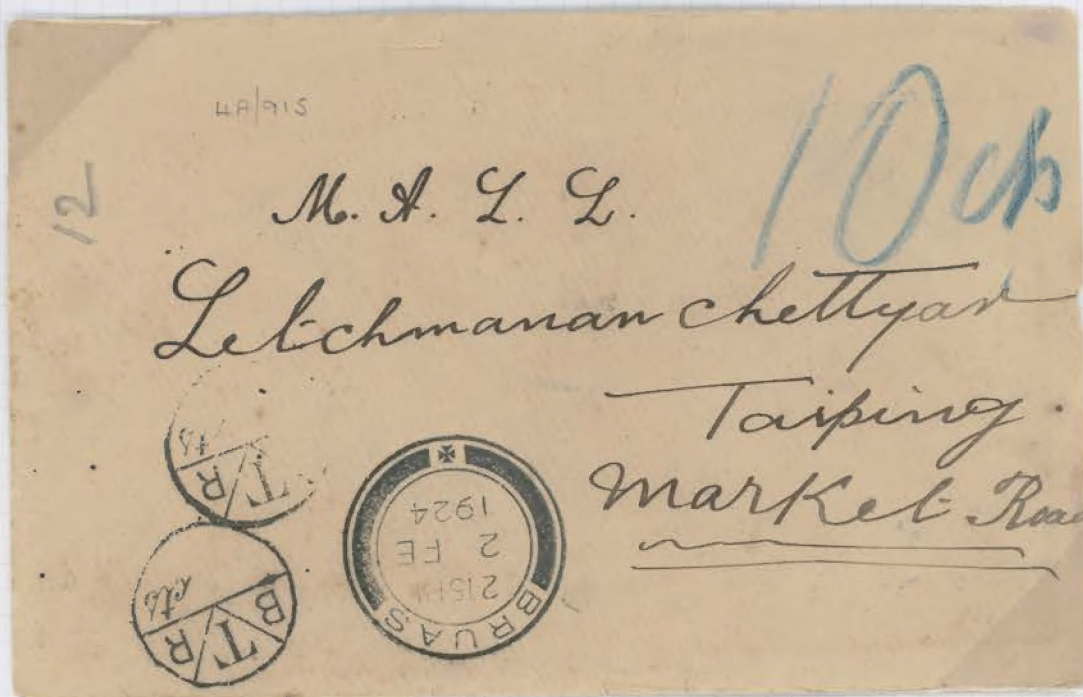 4A/915
12
10 cts
M. A. L. L.
Letchmanan chettyar
Taiping.
Market Road
T R
cts
B T R
cts
BRUAS
2 15 PM
2 FE
1924